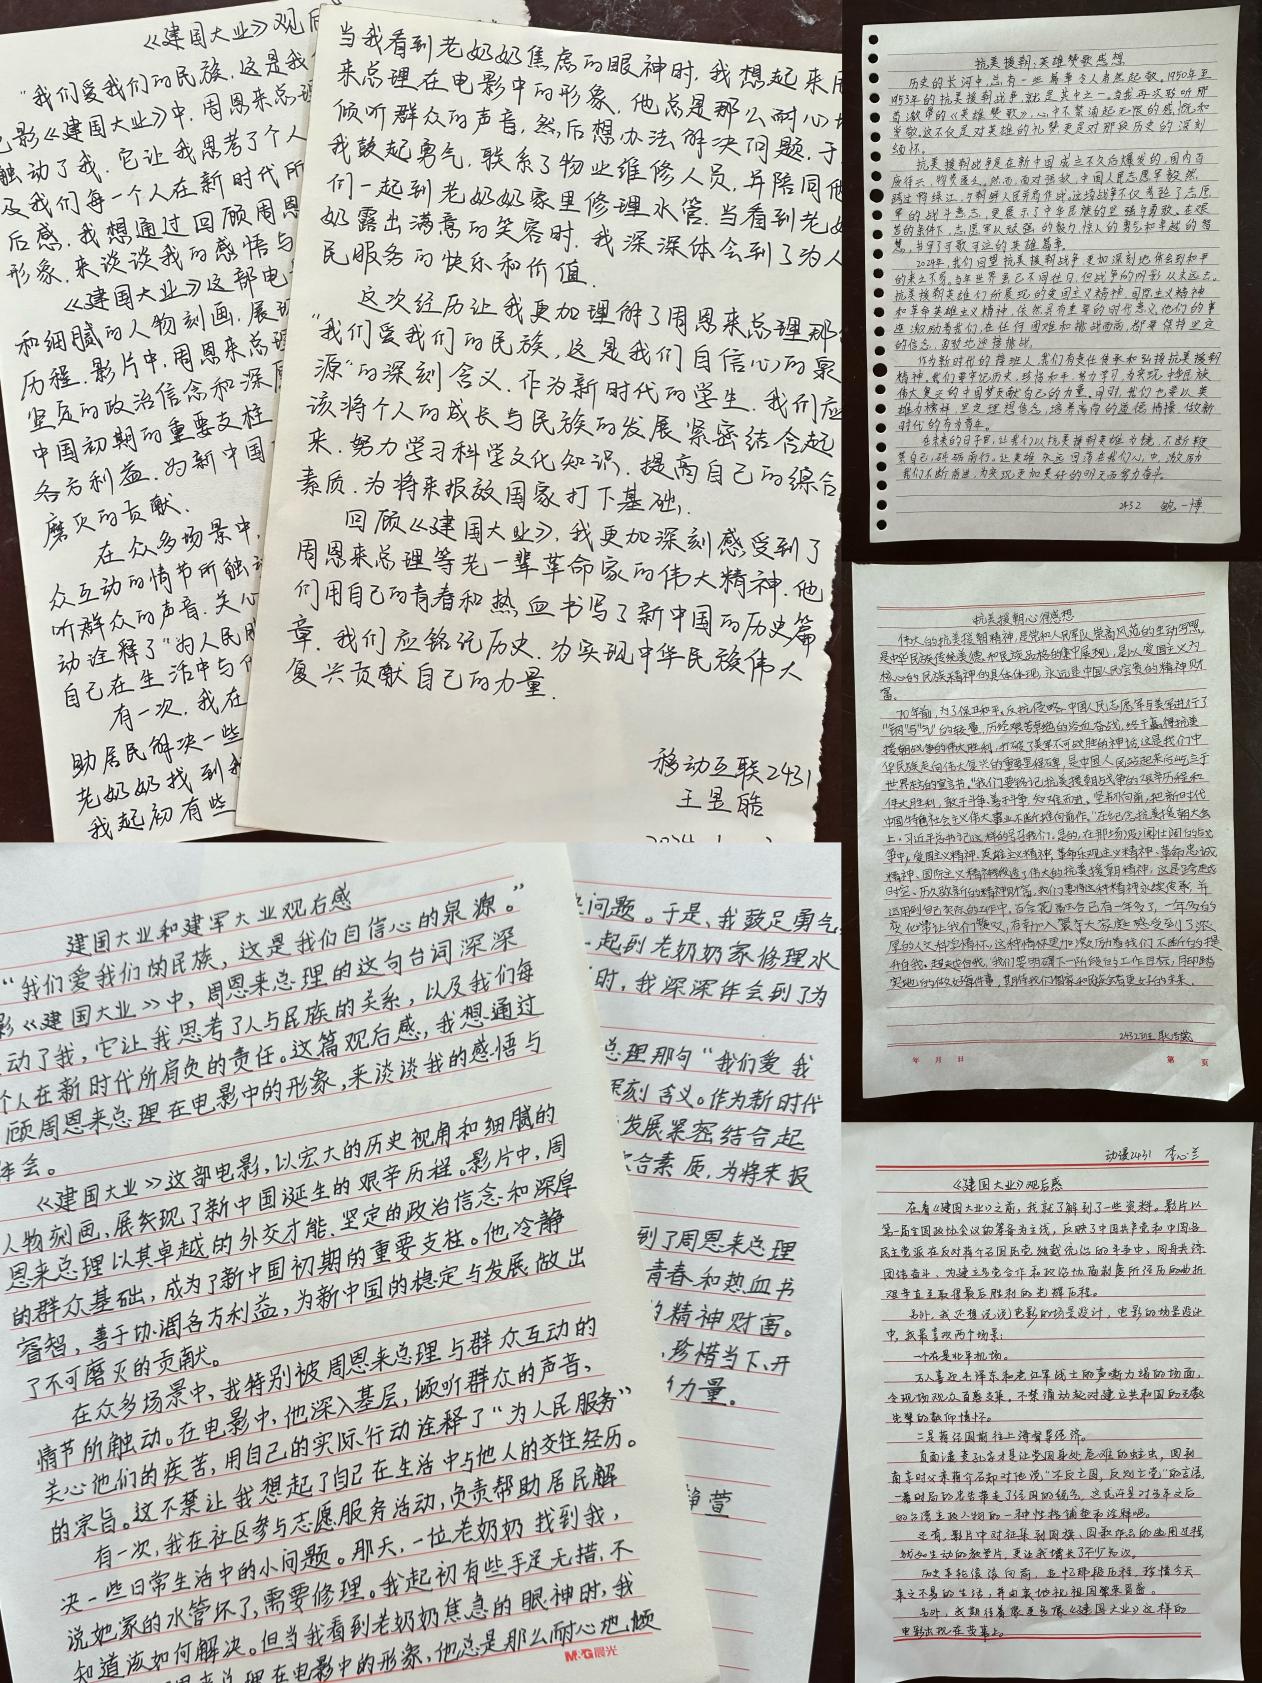 《建国大业》观后
"我们爱我们的民族,这是我
影《建国大业》中,周恩来总理
触动了我,它让我思考了个人
及我们每一个人在新时代所
后感,我想通过回顾周恩
形象,来谈谈我的感悟与
《建国大业》这部电
和细腻的人物刻画,展现
历程.影片中,周恩来总理
坚定的政治信念和深厚
中国初期的重要支柱
各方利益,为新中国
磨灭的贡献.
在众多场景中,
众互动的情节所触动
听群众的声音,关心
动诠释了"为人民服
自己在生活中与他
有一次,我在
助居民解决一些
老奶奶找到我
我起初有些
当我看到老奶奶焦虑的眼神时,我想起来周
来总理在电影中的形象,他总是那么耐心地
倾听群众的声音,然后想办法解决问题,于
我鼓起勇气,联系了物业维修人员,并陪同他
们一起到老奶奶家里修理水管.当看到老奶
奶露出满意的笑容时,我深深体会到了为人
民服务的快乐和价值.
这次经历让我更加理解了周恩来总理那
"我们爱我们的民族,这是我们自信心的泉
源"的深刻含义.作为新时代的学生,我们应
该将个人的成长与民族的发展紧密结合起
来,努力学习科学文化知识,提高自己的综合
素质,为将来报效国家打下基础,
回顾《建国大业》,我更加深刻感受到了
周恩来总理等老一辈革命家的伟大精神.他
们用自己的青春和热血书写了新中国的历史篇
章.我们应铭记历史,为实现中华民族伟大
复兴贡献自己的力量.
移动互联2431
王昱皓
抗美援朝,英雄赞歌感想
历史的长河中,总有一些篇章令人肃然起敬.1950年至
1953年的抗美援朝战争,就是其中之一.当我再次聆听那
首激昂的《英雄赞歌》,心中不禁涌起无限的感慨和
崇敬,这不仅是对英雄的礼赞更是对那段历史的深刻
缅怀.
抗美援朝战争是在新中国成立不久后爆发的,国内百
废待兴,物资匮乏.然而,面对强敌,中国人民志愿军毅然
跨过鸭绿江,与朝鲜人民并肩作战.这场战争不仅考验了志愿
军的战斗意志,更展示了中华民族的坚强与勇敢.在艰
苦的条件下,志愿军以顽强的毅力,惊人的勇气和卓越的智
慧,书写了可歌可泣的英雄篇章.
2024年,我们回望抗美援朝战争,更加深刻地体会到和平
的来之不易.当年世界虽已不同往日,但战争的阴影从未远去.
抗美援朝英雄们所展现的爱国主义精神,国际主义精神
和革命英雄主义精神,依然具有重要的时代意义,他们的事
迹激励着我们,在任何困难和挑战面前,都要保持坚定
的信念,勇敢地迎接挑战.
作为新时代的接班人,我们有责任传承和弘扬抗美援朝
精神.我们要牢记历史,珍惜和平,努力学习,为实现中华民族
伟大复兴的中国梦贡献自己的力量.同时,我们也要以英
雄为榜样,坚定理想信念,培养高尚的道德情操,做新
时代的有为青年.
在未来的日子里,让我们以抗美援朝英雄为镜,不断鞭
策自己,砥砺前行.让英雄永远回荡在我们心中,激励
我们不断前进,为实现更加美好的明天而努力奋斗.
2432 鲍一博
抗美援朝心得感想
伟大的抗美援朝精神,是党和人民军队崇高风范的生动写照,
是中华民族传统美德和民族品格的集中展现,是以爱国主义为
核心的民族精神的具体体现,永远是中国人民宝贵的精神财
富.
70年前,为了保卫和平、反抗侵略,中国人民志愿军与美军进行了
"钢"与"气"的较量,历经艰苦卓绝的浴血奋战,终于赢得抗美
援朝战争的伟大胜利,打破了美军不可战胜的神话,这是我们中
华民族走向伟大复兴的重要里程碑,是中国人民站起来后屹立于
世界东方的宣言书."我们要铭记抗美援朝战争的艰辛历程和
伟大胜利,敢于斗争、善于斗争,知难而进、坚韧向前,把新时代
中国特色社会主义伟大事业不断推向前作."在纪念抗美援朝大会
上,习近平总书记这样的号召我们.是的,在那场波澜壮阔的战
争中,爱国主义精神、英雄主义精神、革命乐观主义精神、革命忠诚
精神、国际主义精神锻造了伟大的抗美援朝精神,这是跨越
时空、历久弥新的精神财富,我们要将这种精神永续传承,并
运用到自己实际的工作中,
厚的人文科室情怀,这种情怀更加激励着我们不断的提
升自我、超越自我,我们要明确下一阶段的工作目标,用脚踏
实地的做好每件事,期待我们国家和民族会有更好的未来.
2432班
年 月 日 第 页
建国大业和建军大业观后感
"我们爱我们的民族,这是我们自信心的泉源。"
影《建国大业》中,周恩来总理的这句台词深深
动了我,它让我思考了人与民族的关系,以及我们每
个人在新时代所肩负的责任。这篇观后感,我想通过
顾周恩来总理在电影中的形象,来谈谈我的感悟与
体会。
《建国大业》这部电影,以宏大的历史视角和细腻的
人物刻画,展现了新中国诞生的艰辛历程。影片中,周
恩来总理以其卓越的外交才能、坚定的政治信念和深厚
的群众基础,成为了新中国初期的重要支柱。他冷静
睿智,善于协调各方利益,为新中国的稳定与发展做出
了不可磨灭的贡献。
在众多场景中,我特别被周恩来总理与群众互动的
情节所触动。在电影中,他深入基层,倾听群众的声音、
关心他们的疾苦,用自己的实际行动诠释了"为人民服务"
的宗旨。这不禁让我想起了自己在生活中与他人的交往经历。
有一次,我在社区参与志愿服务活动,负责帮助居民解
决一些日常生活中的小问题。那天,一位老奶奶找到我,
说她家的水管坏了,需要修理。我起初有些手足无措,不
知道该如何解决。但当我看到老奶奶焦急的眼神时,我
来总理在电影中的形象,他总是那么耐心地倾
M&G晨光
问题。于是、我鼓足勇气
一起到老奶奶家修理水
时,我深深体会到了为
总理那句"我们爱我
深刻含义。作为新时代
发展紧密结合起
合素质,为将来报
到了周恩来总理
青春和热血书
精神财富。
,珍惜当下、开
力量。
静萱
动漫2431 李心兰
《建国大业》观后感
在看《建国大业》之前,我就了解到了一些资料。影片以
第一届全国政协会议的筹备为主线,反映了中国共产党和中国各
民主党派在反对蒋介石国民党独裁统治的斗争中,同舟共济、
团结奋斗、为建立多党合作和政治协商制度所经历的曲折
艰辛直至取得最后胜利的光辉历程。
另外,我还想说说电影的场景设计,电影的场景设计
中,我最喜欢两个场景:
一个在是北平机场。
万人喜迎毛泽东和老红军战士的声嘶力竭的场面,
令现场观众百感交集,不禁涌动起对建立共和国的无数
先辈的敬仰情怀。
二是蒋经国前往上海督导经济。
直面遭责孔家才是让党国身处危难的蛀虫,回到
南京时父亲蒋介石却对他说"不反亡国,反则亡党"的言语,
的台湾主政人物的一种性格铺垫和诠释吧。
还有,影片中对征集到国旗、国歌作品的选用过程,
就如生动的教学片,更让我增长了不少知识。
历史车轮滚滚向前,追忆那段历程,珍惜今天
来之不易的生活,并由衷地祝祖国繁荣昌盛。
另外,我期待着像更多像《建国大业》这样的
电影出现在荧幕上。